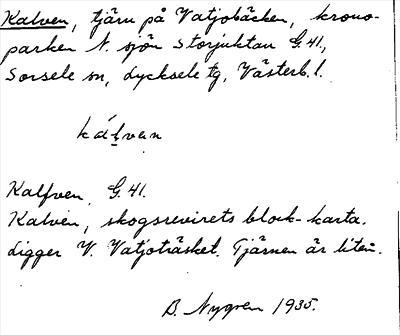 Kalven, tjärn på Vatjobäcken, krono-
parken N. sjön Storjuktan G.41.,
Sorsele sn, Lycksele tg, Västerb. l.
káḷven
Kalfven, G.41.
Kalven, skogsrevirets block-karta.
Ligger V. Vatjoträsket. Tjärnen är liten.
B. Nygren 1935.